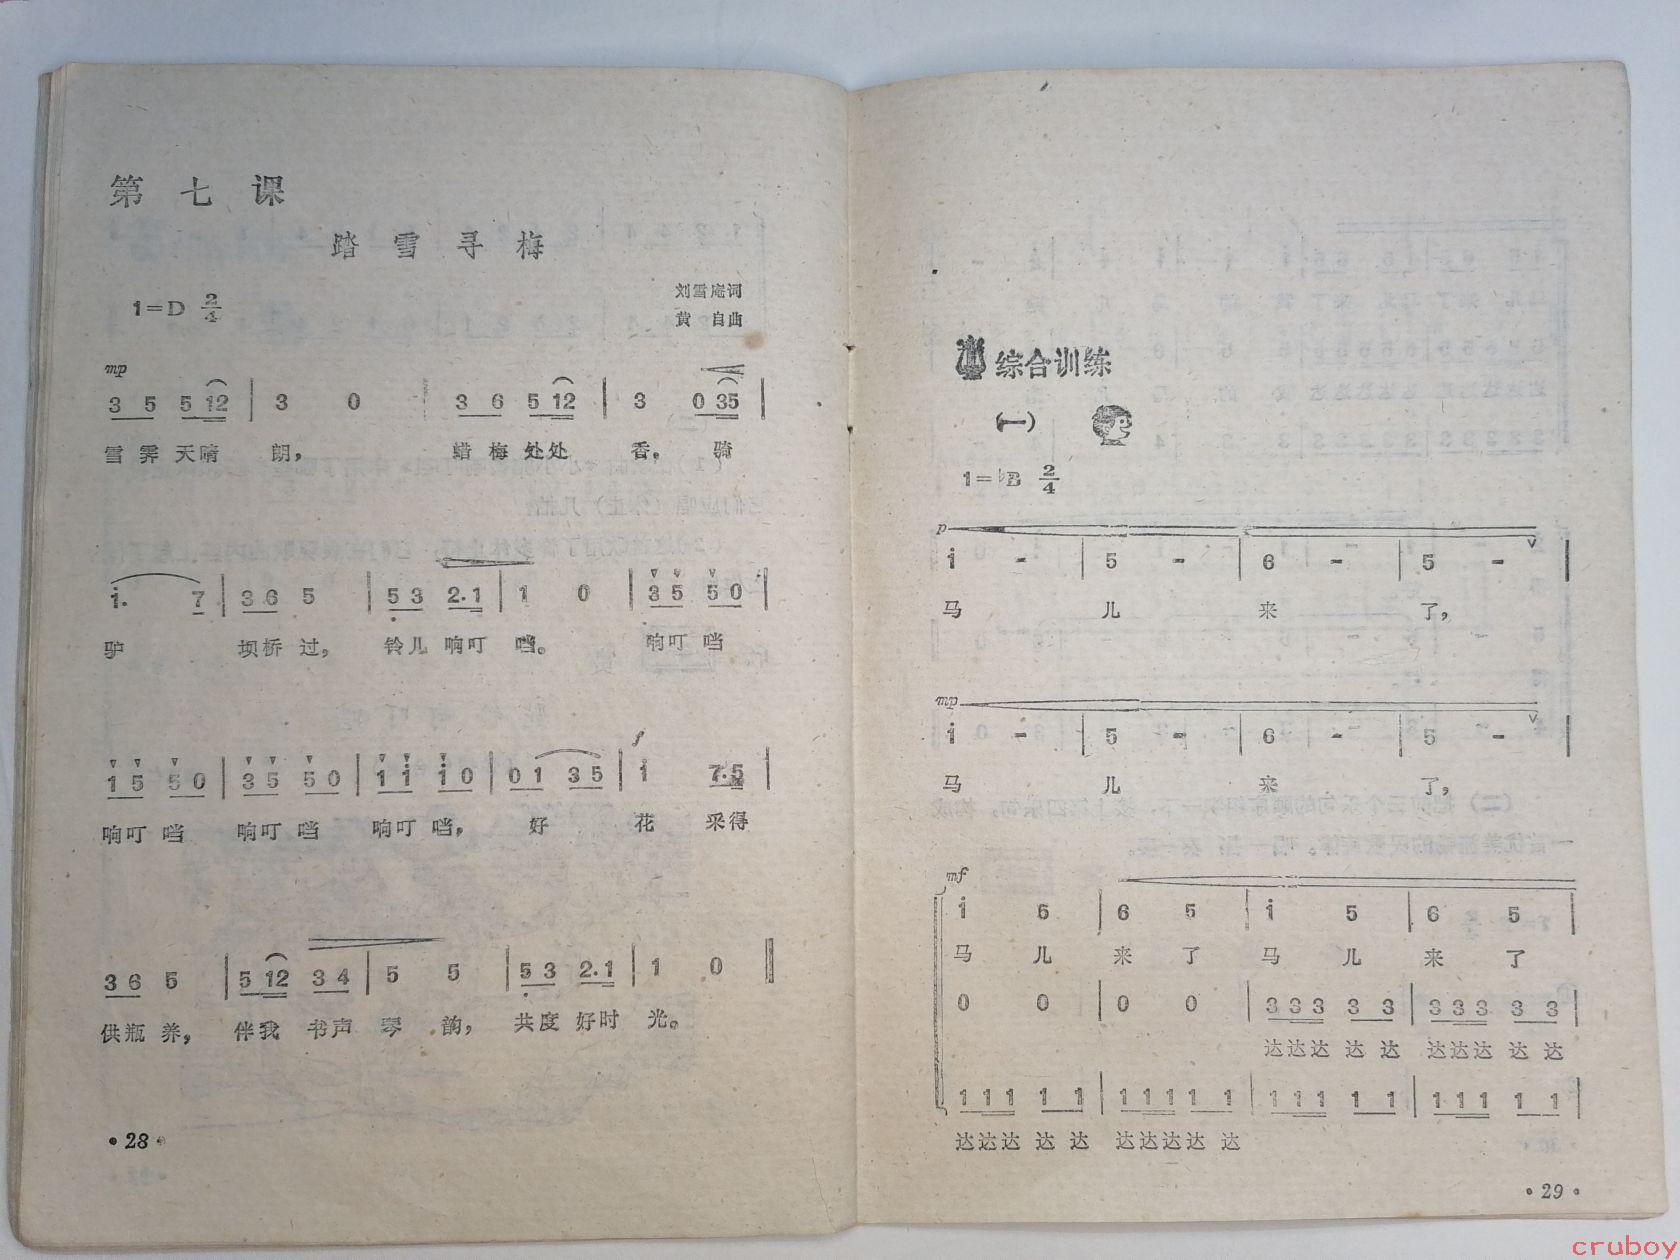 第七课
踏雪寻梅
1=D 2/4
刘雪庵词
黄 自曲
mp
3 5 5 12 | 3 0 | 3 6 5 12 | 3 0 35 |
雪霁天晴 朗, 蜡梅处处 香。 骑
i. 7 | 3 6 5 | 5 3 2.1 | 1 0 | 3 5 5 0 |
驴 坝桥过, 铃儿响叮 珰。 响叮珰
f
1 5 5 0 | 3 5 5 0 | 1 i i 0 | 0 1 3 5 | i 7.5 |
响叮珰 响叮珰 响叮珰, 好 花 采得
3 6 5 | 5 12 3 4 | 5 5 | 5 3 2.1 | 1 0 ‖
供瓶养, 伴我书声 琴 韵, 共度好时 光。
·28·
综合训练
(一)
1=♭B 2/4
p
i - | 5 - | 6 - | 5 - |
马 儿 来 了,
mp
i - | 5 - | 6 - | 5 - |
马 儿 来 了,
mf
i 6 | 6 5 | i 5 | 6 5 |
马 儿 来 了 马 儿 来 了
0 0 | 0 0 | 3 3 3 3 3 | 3 3 3 3 3 |
达达达 达 达 达达达 达 达
1 1 1 1 1 | 1 1 1 1 1 | 1 1 1 1 1 | 1 1 1 1 1 |
达达达 达 达 达达达达 达
·29·
cruboy